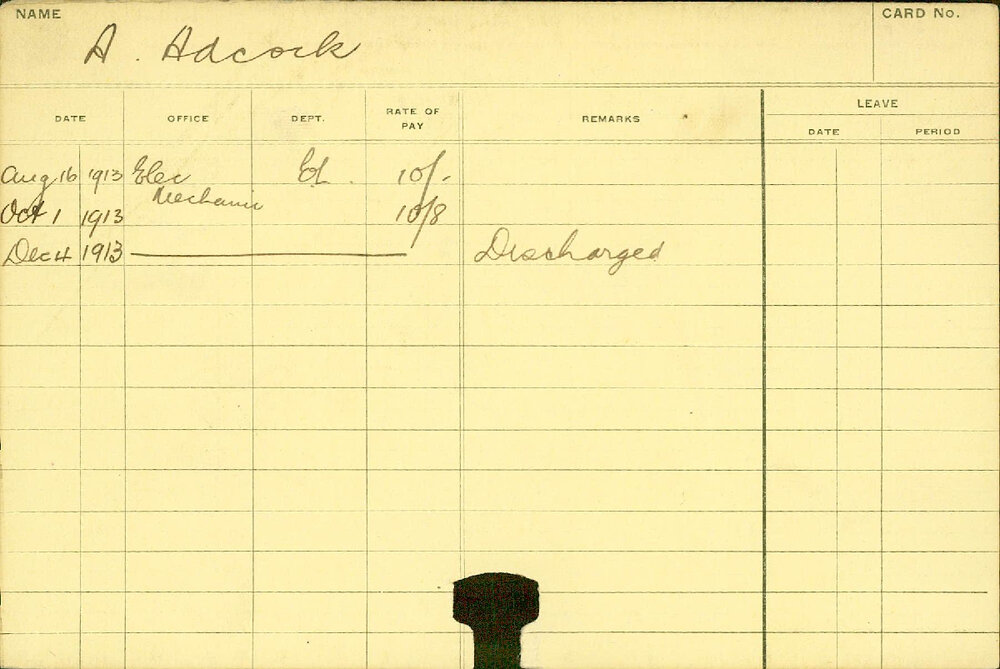 NAME CARD No.
A. Adcock
DATE OFFICE DEPT. RATE OF PAY REMARKS LEAVE
DATE PERIOD
Aug 16 1913 Elec El. 10/-
Mechanic
Oct 1 1913 10/8
Dec 4 1913 Discharged